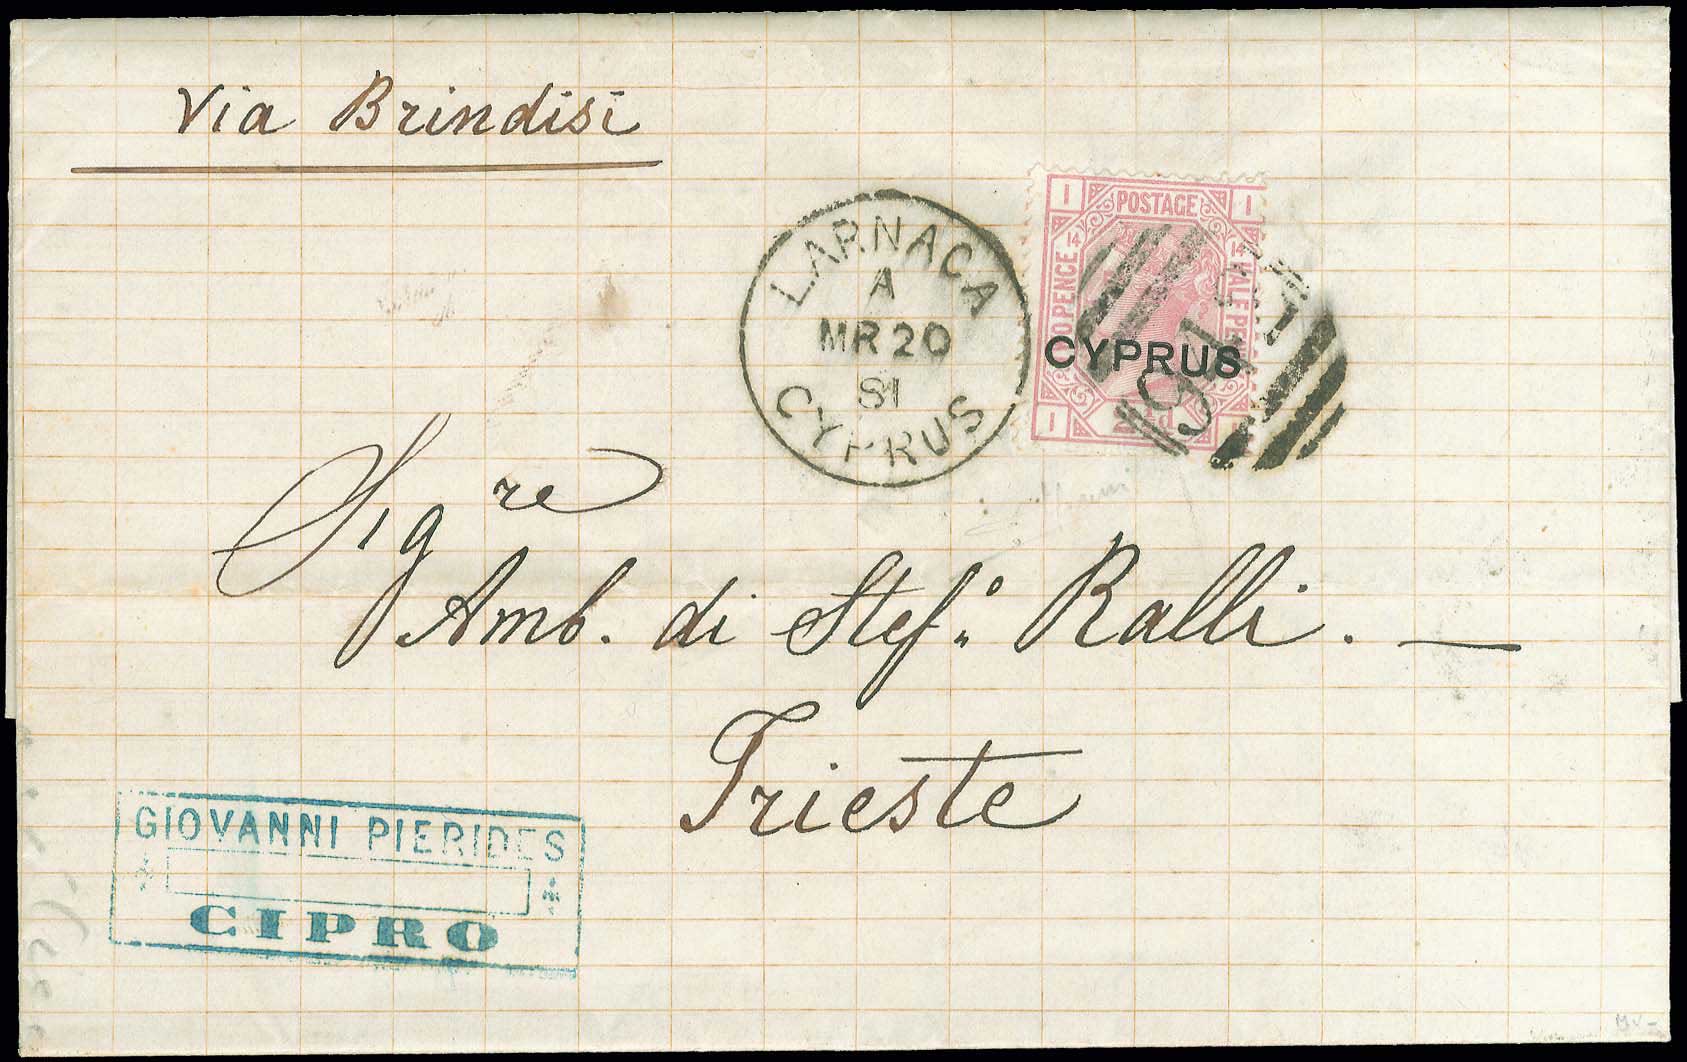 Via Brindisi
LARNACA
A
MR 20
81
CYPRUS
1 POSTAGE 1
14 14
PENCE HALF PE
CYPRUS
942
1
Sigre
Amb. di Stefo. Ralli. —
Trieste
GIOVANNI PIERIDES
CIPRO